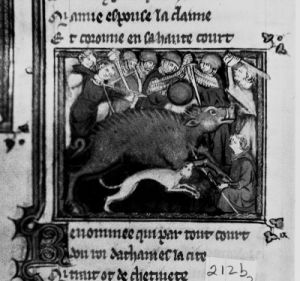 Qi amie espouse la dame
Et coronne en sa haute court
Renommee qui par tout court
Dou roi dathaines la cite
Qi tant ot de chetivete
212b